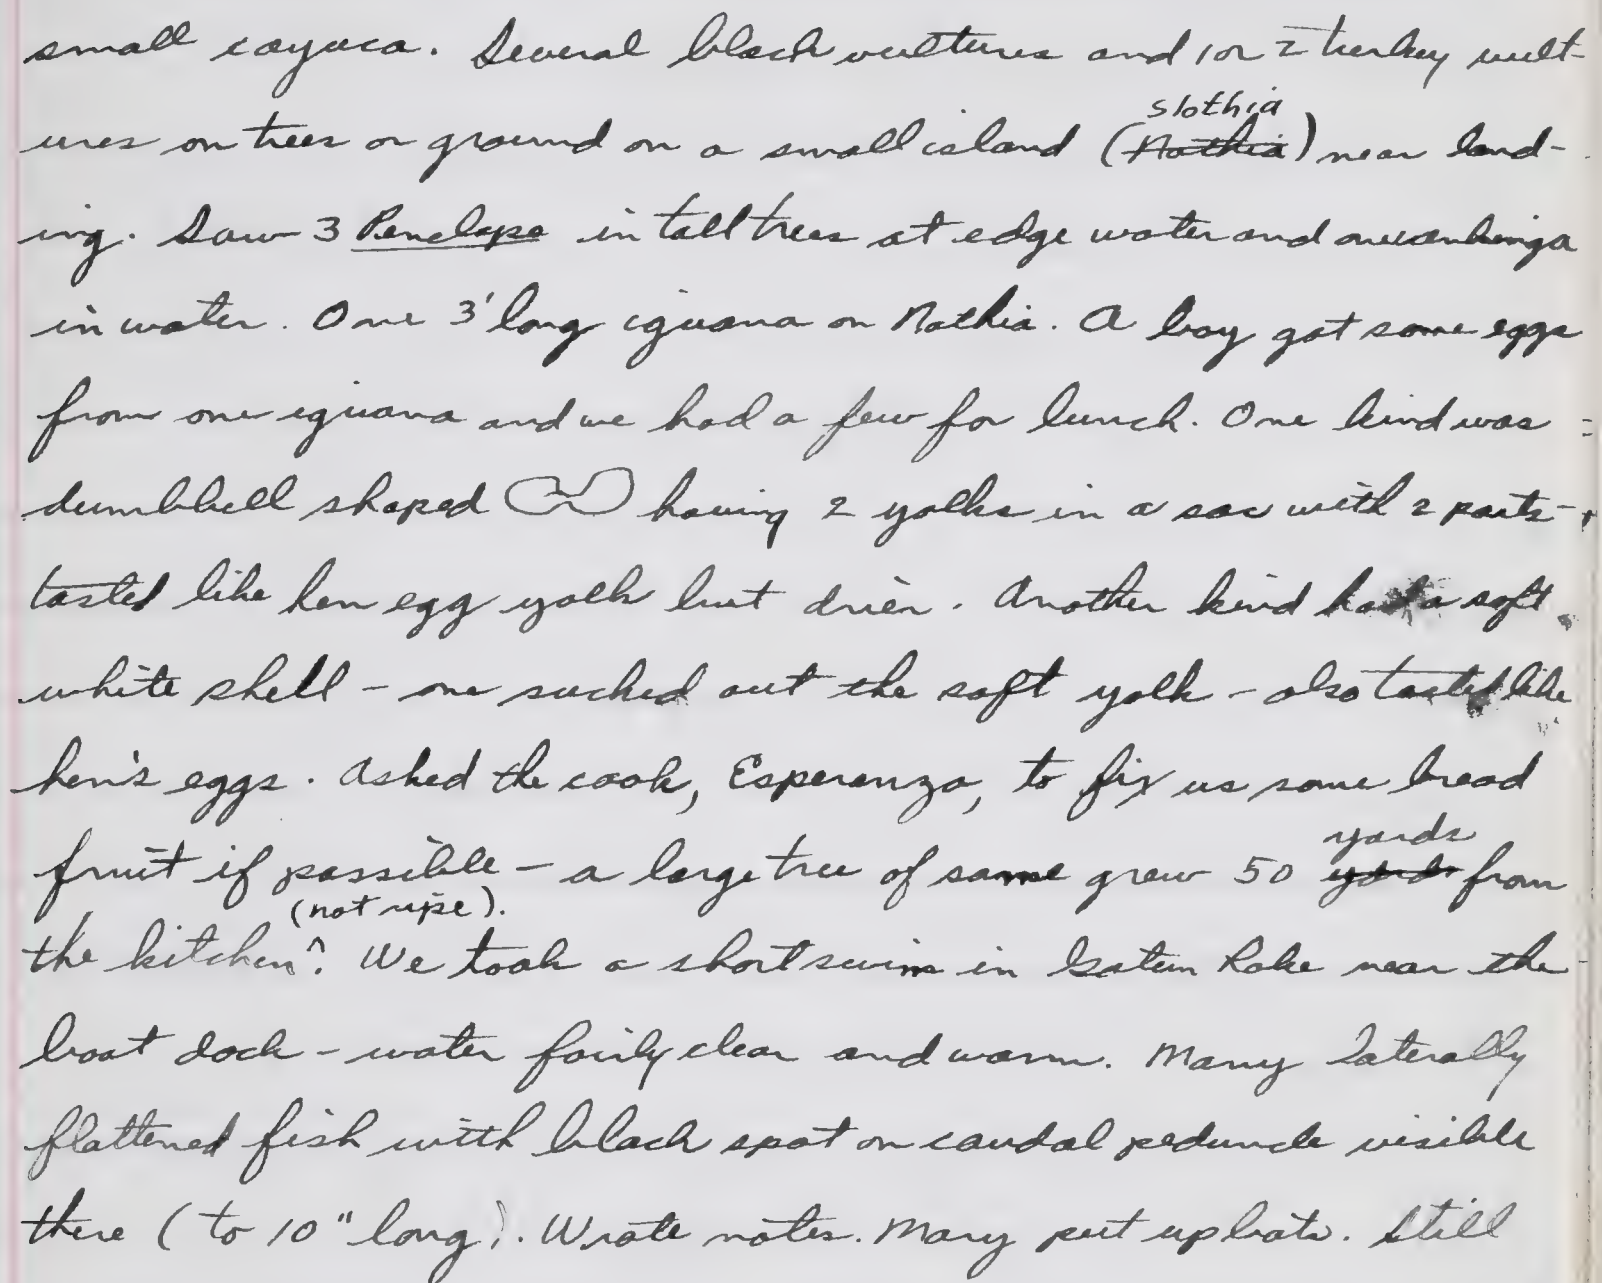 small cayuca. Several black vultures and 1 or 2 turkey vult-
slothia
ures on trees or ground on a small island (Nathia) near land-
ing. Saw 3 Penelope in tall trees at edge water and one anhinga
in water. One 3' long iguana on Nathia. A boy got some eggs
from one iguana and we had a few for lunch. One kind was
dumbbell shaped having 2 yolks in a sac with 2 parts -
tasted like hen egg yolk but drier. Another kind had a soft
white shell - one sucked out the soft yolk - also tasted like
hen's eggs. Asked the cook, Esperanza, to fix us some bread
yards
fruit if possible - a large tree of same grew 50 yards from
(not ripe).
the kitchen^. We took a short swim in Gatun Lake near the
boat dock - water fairly clear and warm. Many laterally
flattened fish with black spot on caudal peduncle visible
there (to 10" long). Wrote notes. Mary put up bats. Still